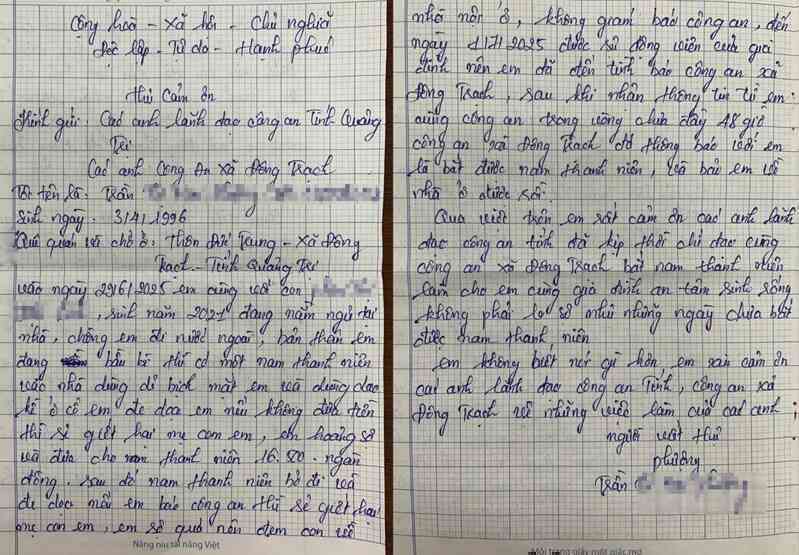 Cộng hoà - Xã hội - Chủ nghĩa
Độc lập - Tự do - Hạnh phúc
Thư Cảm ơn
Kính gửi: Các anh lãnh đạo công an Tỉnh Quảng
Trị
Các anh Công An xã Đông Trạch
Tôi tên là: Trần
Sinh ngày. 3/4/1996
Quê quán và chỗ ở: thôn Đức Trung - Xã Đông
Trạch - Tỉnh Quảng Trị
vào ngày 29/6/2025 em cùng với con
, sinh năm 2021 đang nằm ngủ tại
nhà, chồng em đi nước ngoài, bản thân em
đang bầu bí thì có một nam thanh niên
vào nhà dùng để bịch mặt em và dùng dao
kề ở cổ em đe doạ em nếu không đưa tiền
thì sẽ giết hai mẹ con em, em hoảng sợ
và đưa cho nam thanh niên 16.500. ngàn
đồng. sau đó nam thanh niên bỏ đi và
đe doạ nếu em báo công an thì sẽ giết hai
mẹ con em, em sợ quá nên đem con về
nhà nội ở, không giám báo công an, đến
ngày 1/7/2025 được sự động viên của gia
đình nên em đã đến trình báo công an xã
Đông Trạch, sau khi nhận thông tin từ em
cùng công an trong vòng chưa đầy 48 giờ
công an xã Đông Trạch đã thông báo với em
là bắt được nam thanh niên, và bảo em về
nhà ở được rồi.
Qua viết trên em rất cảm ơn các anh lãnh
đạo công an tỉnh đã kịp thời chỉ đạo cùng
công an xã Đông Trạch bắt nam thanh niên
làm cho em cùng gia đình an tâm sinh sống
không phải lo sợ như những ngày chưa bắt
được nam thanh niên.
Em không biết nói gì hơn, em xin cảm ơn
các anh lãnh đạo công an Tỉnh, công an xã
Đông Trạch về những việc làm của các anh
người viết thư
phượng
Trần
Nâng niu tài năng Việt
Môi trường giấy mát giác mơ